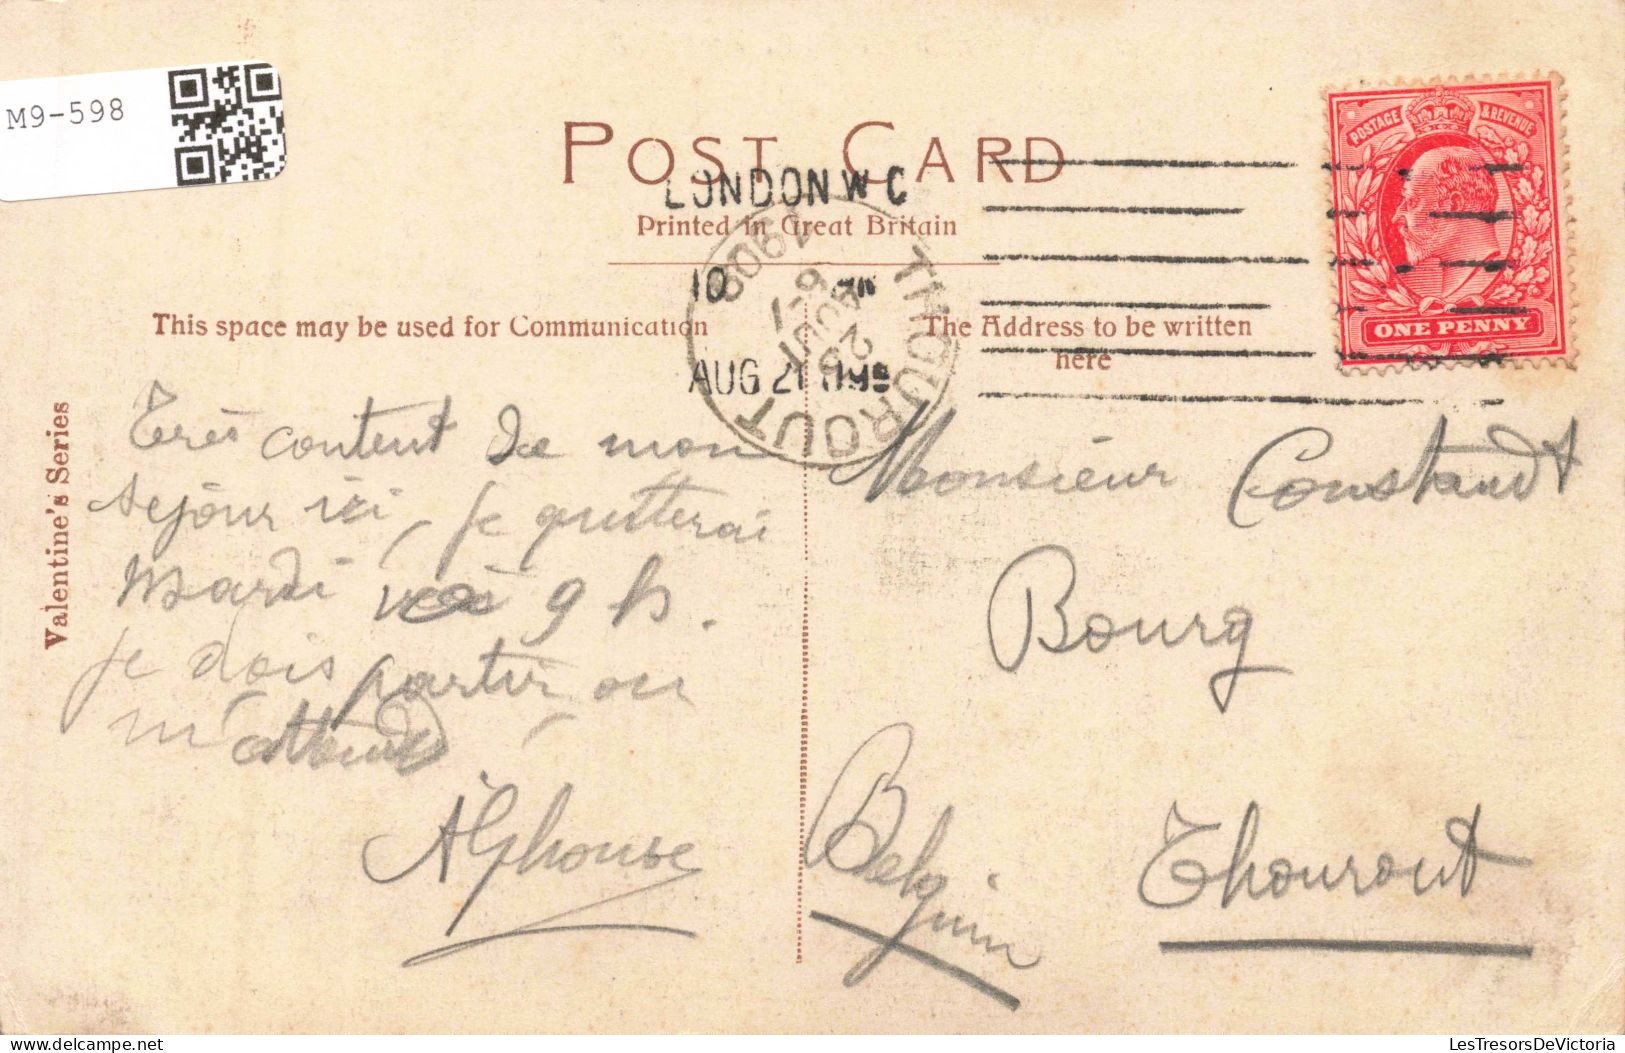 M9-598
POST CARD
LONDON W C
Printed in Great Britain
10
AUG 21
THOUROUT
1908
26
AOUT
6-7
POSTAGE & REVENUE
ONE PENNY
This space may be used for Communication
The Address to be written
here
Valentine's Series
Très content de mon
séjour ici, je quitterai
Mardi à 9 h.
je dois partir, on
m'attend
Alphonse
Monsieur Constant
Bourg
Thourout
Belgium
LesTresorsDeVictoria